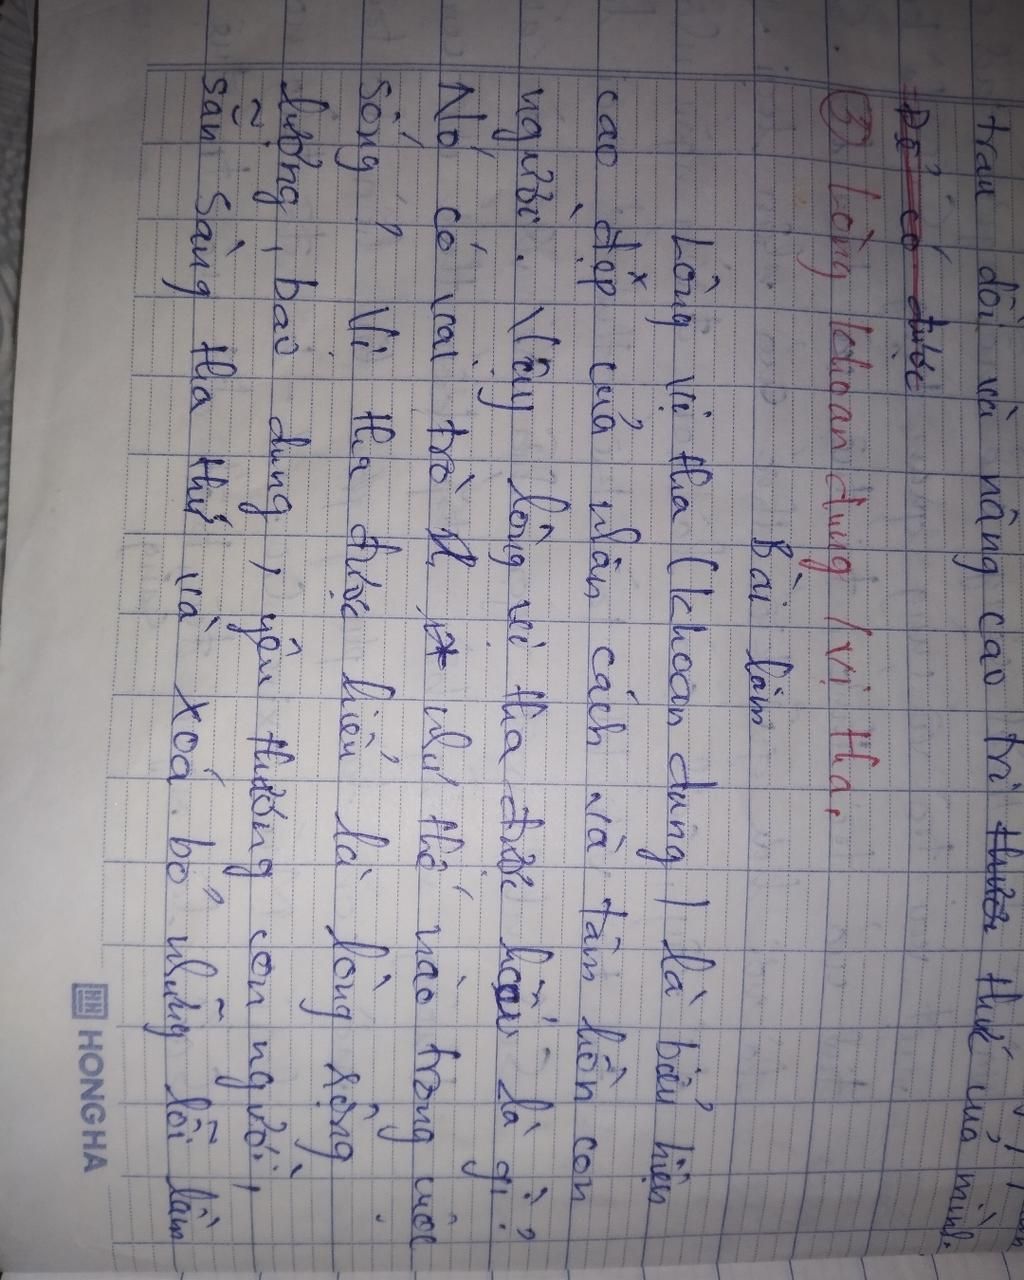 trau dồi và nâng cao tri thức của mình.
Để có được
③ Lòng khoan dung / vị tha.
Bài làm
Lòng vị tha (khoan dung) là biểu hiện
cao đẹp của nhân cách và tâm hồn con
người. Vậy lòng vị tha được hiểu là gì?
Nó có vai trò như thế nào trong cuộc
sống? Vị tha được hiểu là lòng rộng
lượng, bao dung, yêu thương con người,
sẵn sàng tha thứ và xoá bỏ những lỗi lầm
HONG HA